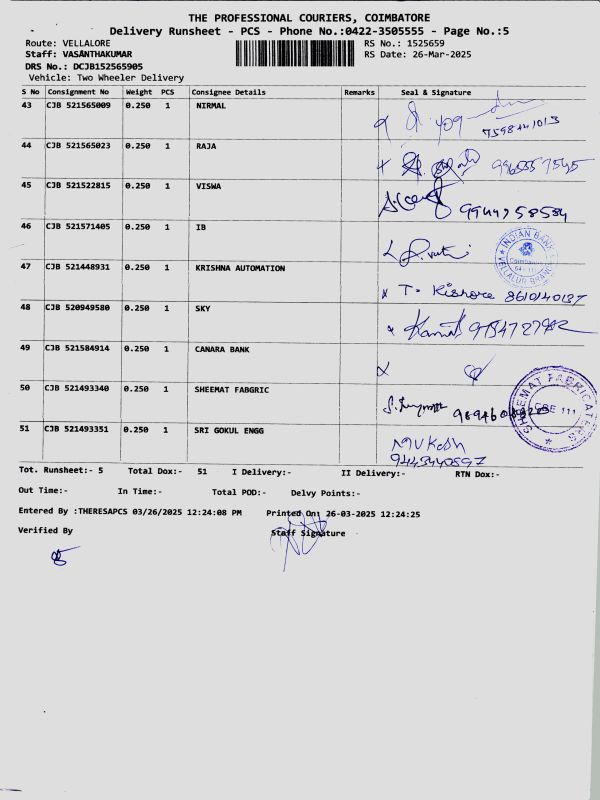 THE PROFESSIONAL COURIERS, COIMBATORE
Delivery Runsheet - PCS - Phone No.:0422-3505555 - Page No.:5
Route: VELLALORE RS No.: 1525659
Staff: VASANTHAKUMAR RS Date: 26-Mar-2025
DRS No.: DCJB152565905
Vehicle: Two Wheeler Delivery
S No Consignment No Weight PCS Consignee Details Remarks Seal & Signature
43 CJB 521565009 0.250 1 NIRMAL
44 CJB 521565023 0.250 1 RAJA
45 CJB 521522815 0.250 1 VISWA
46 CJB 521571405 0.250 1 IB INDIAN BANK VELLALUR BRANCH
47 CJB 521448931 0.250 1 KRISHNA AUTOMATION T. Kishore 8610140137
48 CJB 520949580 0.250 1 SKY
49 CJB 521584914 0.250 1 CANARA BANK
50 CJB 521493340 0.250 1 SHEEMAT FABGRIC SHEEMAT FABRICATERS CBE 111
51 CJB 521493351 0.250 1 SRI GOKUL ENGG
Tot. Runsheet:- 5 Total Dox:- 51 I Delivery:- II Delivery:- RTN Dox:-
Out Time:- In Time:- Total POD:- Delvy Points:-
Entered By :THERESAPCS 03/26/2025 12:24:08 PM Printed On: 26-03-2025 12:24:25
Verified By Staff Signature